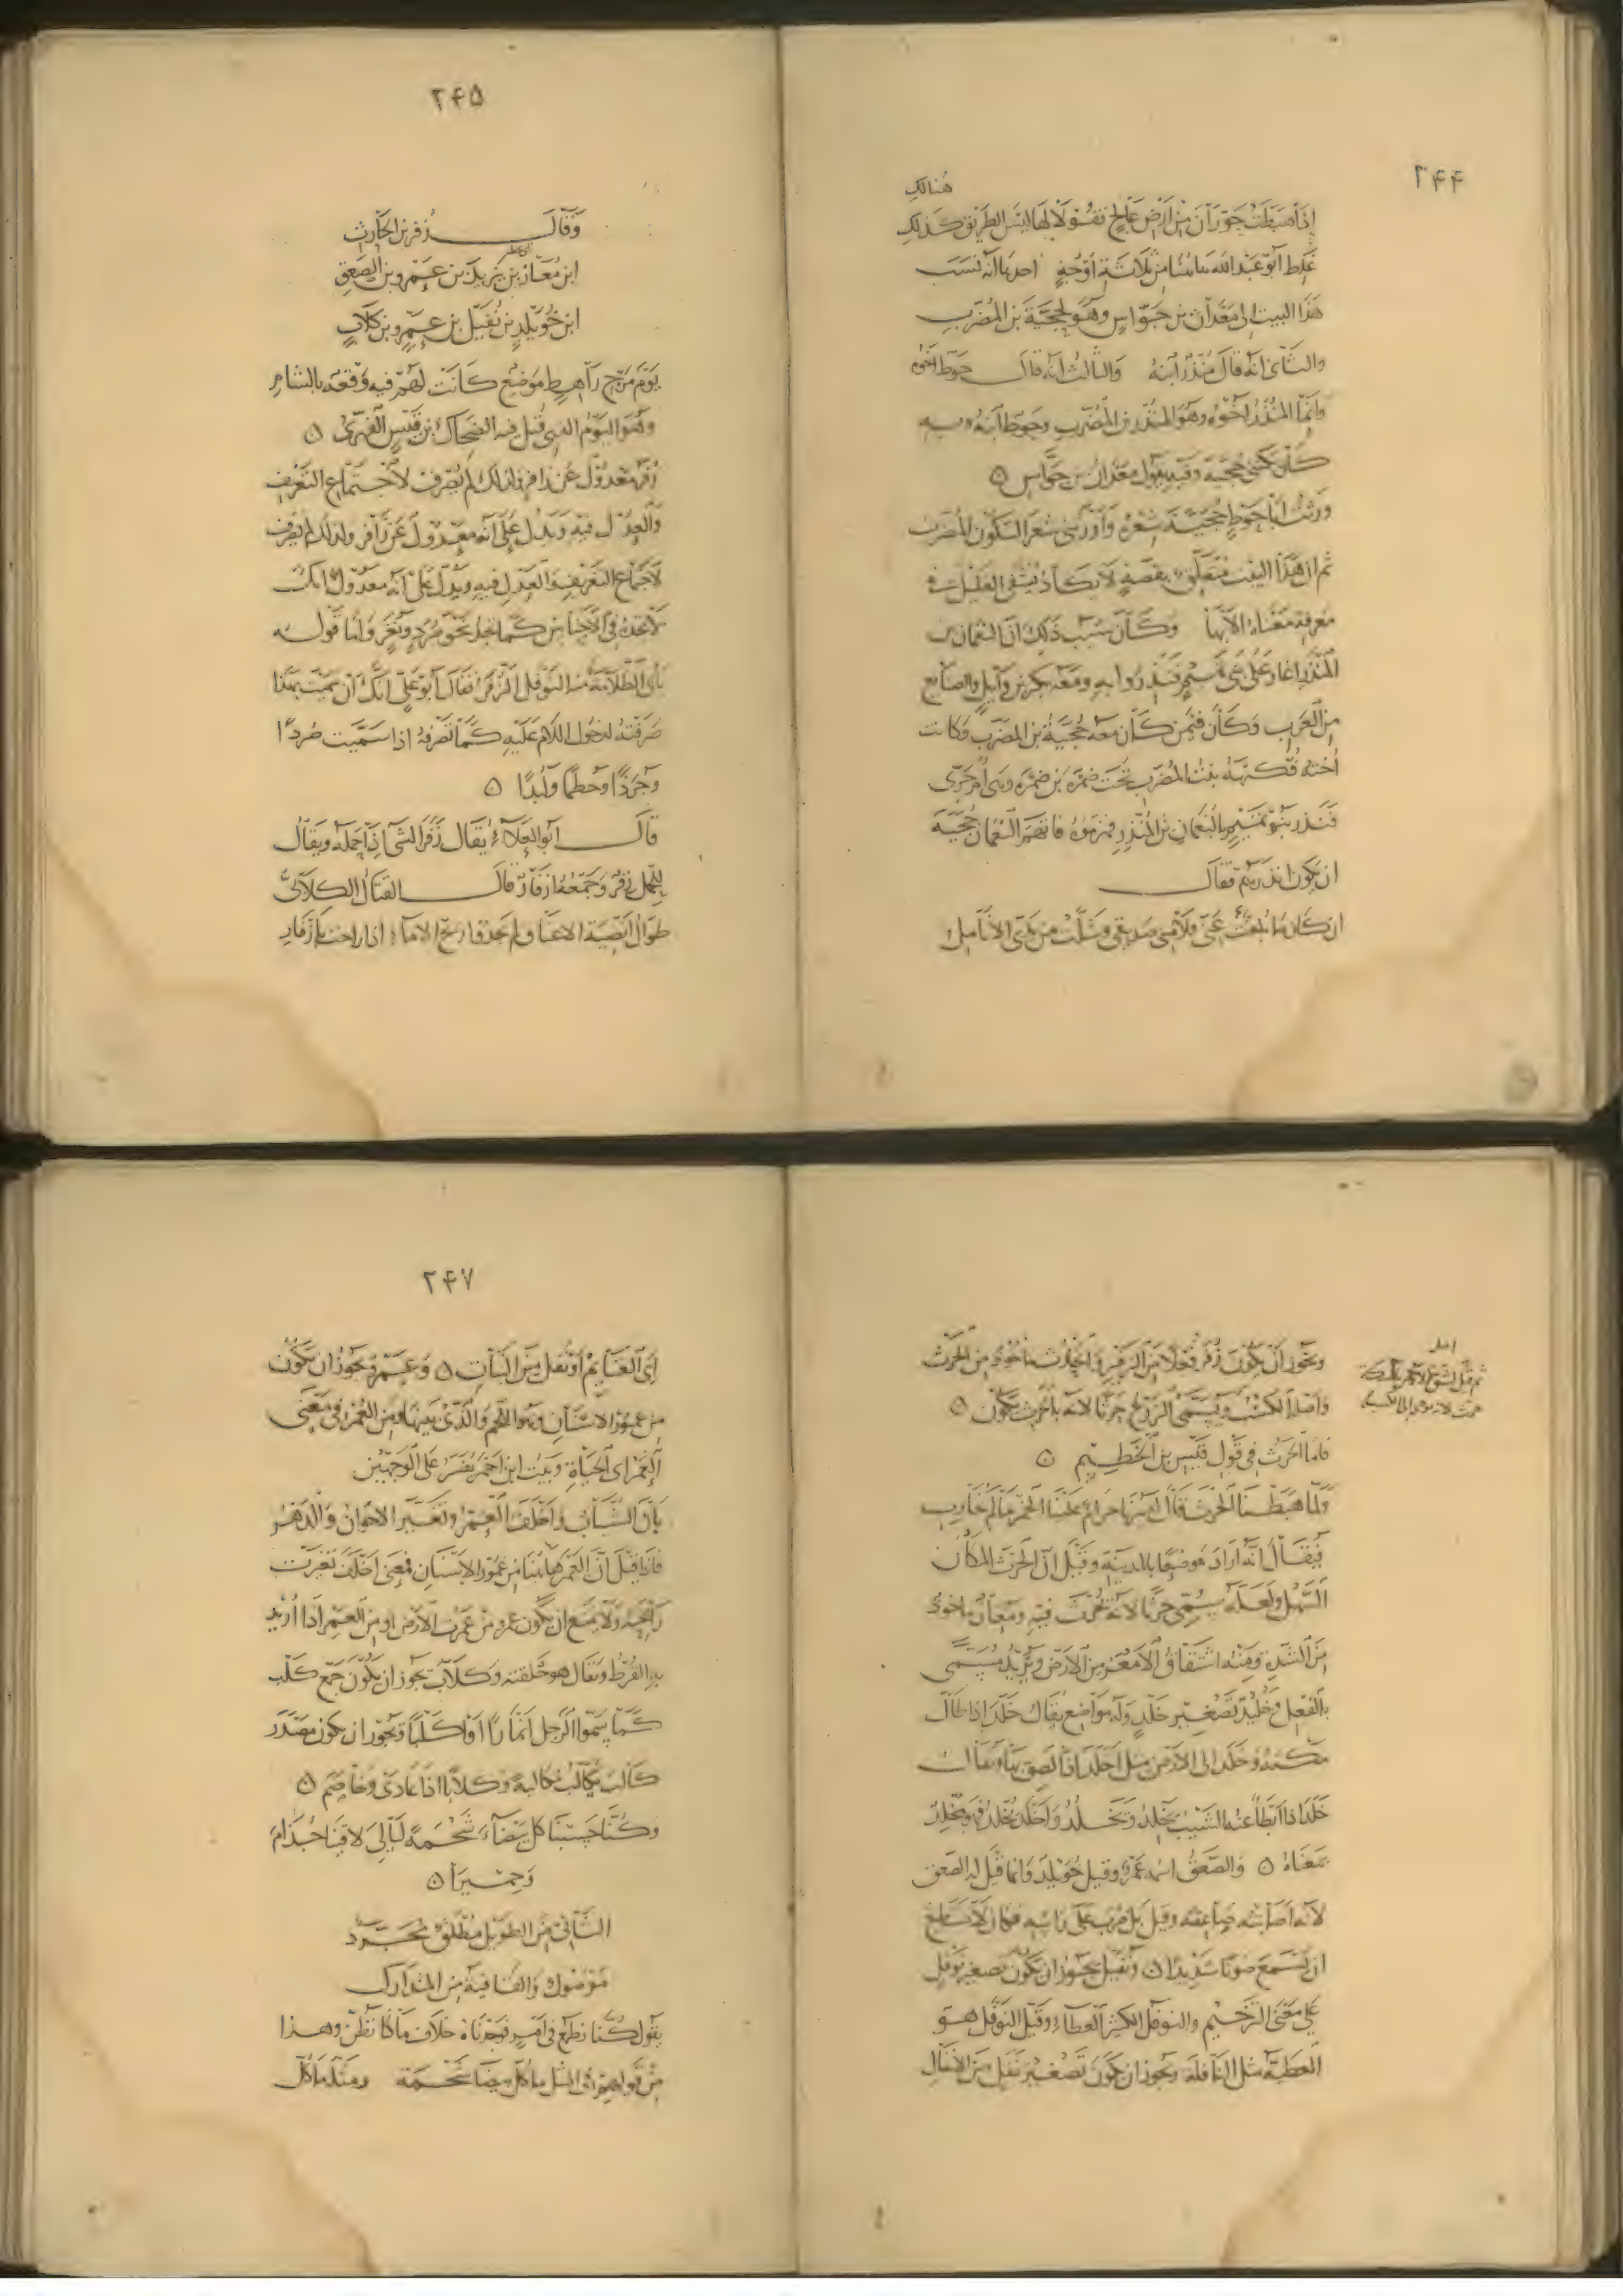 ٢۴۴
هنالك
إذا هبطت حوران من أرض عالج فقولا لها ليس الطريق كذلك
غلط أبو عبد الله هاهنا من ثلاثة أوجه احدها أنه نسب
هذا البيت إلى معدان بن جواس وهو لحجية بن المضرب
والثاني أنه قال منذر ابنه والثالث أنه قال حوط اخوه
وإنما المنذر اخوه وهو المنذر بن المضرب وحوط ابنه وبه
كان يكنى حجية وفيه يقول معدان بن جواس ٥
ورثت أبا حوط حجية شعره وأورثني شعر السكون المضرب
ثم ان هذا البيت متعلق بقصة لا يكاد يشفى الغليل في
معرفة معناه الا بها وكان سبب ذلك ان النعمان بن
المنذر اغار على بني تميم فنذروا به ومعه بكر بن وآئل والصنآئع
من العرب وكان فيمن كان معه حجية بن المضرب وكانت
أخته فكيهة بنت المضرب تحت ضمرة بن ضمرة وهي أم حري
فنذر بنو تميم بالنعمان بن المنذر فهزموه فاتهم النعمان حجية
ان يكون انذرهم فقال
ان كان ما بلغت عني فلامني صديقي وشلت من يدي الأنامل
٢۴۵
وقال زفر بن الحارث
ابن معاز بن يزيد بن عمرو بن الصعق
ابن خويلد بن نفيل بن عمرو بن كلاب
يوم مرج راهط موضع كانت لهم فيه وقعة بالشام
وهو اليوم الذي قتل فيه الضحاك بن قيس الفهري ٥
زفر معدول عن زافر ولذلك لم يصرف لاجتماع التعريف
والعدل فيه ويدل على أنه معدول عن زافر ولذلك لم يصرف
لاجتماع التعريف والعدل فيه ويدل على أنه معدول انك
لا تجده في الأجناس كما تجد نحو صرد ونغر وأما قوله
يأبى الظلامة منه النوفل الزفر فقال أبو علي انك ان سميت بهذا
صرفته لدخول اللام عليه كما تصرفه اذا سميت صردًا
وجرذًا وحطمًا ولبدًا ٥
قال أبو العلآء يقال زفر الشئ إذا حمله ويقال
للحمل زفر وجمعه ازفار قال القتال الكلابي
طوال انضية الاعناق لم يجدوا ريح الامآء اذا راحت بازفار
اصل
ويجوز أن يكون زفر فعلا من الزفير والحارث ماخوذ من الحرث
وأصله الكسب ويسمى الزرع حرثا لانه بالحرث يكون ٥
فأما الحرث في قول قيس بن الخطيم ٥
ولما هبطنا الحرث قال أميرنا حرام علينا الخمر ما لم نحارب
فيقال انه أراد موضعا بالمدينة وقيل ان الحرث المكان
السهل ولعله يسمى حرثا لانه يحرث فيه ومعاز ماخوذ
من الشدة ومنه اشتقاق الأمعز من الأرض ويزيد مسمى
بالفعل وخليد تصغير خلد وله مواضع يقال خلد اذا طال
مكثه وخلد الى الارض مثل أخلد اذا لصق بها ويقال
خلد اذا ابطأ عنه الشيب يخلد ويخلد وأخلد يخلد فهو مخلد
بمعناه ٥ والصعق اسمه عمرو وقيل خويلد وانما قيل له الصعق
لأنه أصابته صاعقة وقيل بل ضرب على راسه فكان لا يستطيع
ان يسمع صوتا شديدا ٥ ونفيل يجوز ان يكون تصغير نوفل
على معنى الترخيم والنوفل الكثير العطاء وقيل النوفل هو
العطية مثل النافلة ويجوز ان يكون تصغير نفل من الأنفال
٢۴٧
اي الغنآئم أو نفل من النبات ٥ وعمرو يجوز ان يكون
من عمور الاسنان وهو اللحم الذي بينها ومن العمر في معنى
العمر اي الحياة وبيت ابن احمر يفسر على الوجهين
بان الشباب واخلف العمر وتغير الاخوان والدهر
فاذا قيل ان العمر هاهنا من عمور الاسنان فمعنى اخلف تغيرت
رائحته ولا يمتنع ان يكون عمرو من عمرت الأرض او من العمر اذا أريد
به القرط ويقال هو حلقته وكلاب يجوز ان يكون جمع كلب
كما سموا الرجل انمارا او اكلبا ويجوز ان يكون مصدر
كالب يكالب مكالبة وكلابا اذا عادى وخاصم ٥
وكنا حسبنا كل بيضاء شحمة ليالي لاقينا جذام
وحميرا ٥
الثاني من الطويل مطلق مجرد
موصول والقافية من المتدارك
يقول كنا نطمع في أمر فوجدناه خلاف ما كنا نظن وهذا
من قولهم في المثل ما كل بيضاء شحمة ومثله ما كل